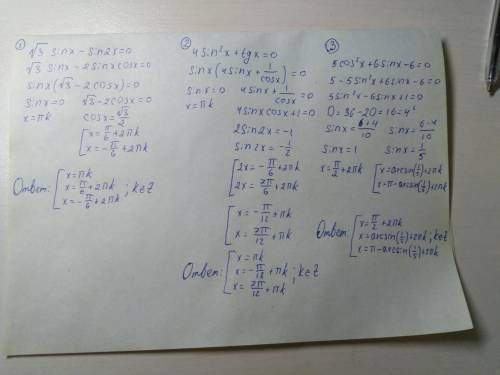 ①
√3 sinx - sin2x=0
√3 sinx - 2sinxcosx=0
sinx(√3-2cosx)=0
sinx=0 √3-2cosx=0
x=πk cosx=√3/2
[x=π/6+2πk
x=-π/6+2πk
Ответ: [x=πk
x=π/6+2πk ; k∈Z
x=-π/6+2πk
②
4sin²x+tgx=0
sinx(4sinx+1/cosx)=0
sinx=0 4sinx+1/cosx=0
x=πk
4sinxcosx+1=0
2sin2x=-1
sin2x=-1/2
[2x=-π/6+2πk
2x=7π/6+2πk
[x=-π/12+πk
x=7π/12+πk
Ответ: [x=πk
x=-π/12+πk ; k∈Z
x=7π/12+πk
③
5cos²x+6sinx-6=0
5-5sin²x+6sinx-6=0
5sin²x-6sinx+1=0
D=36-20=16=4²
sinx=6+4/10 sinx=6-4/10
sinx=1 sinx=1/5
x=π/2+2πk [x=arcsin(1/5)+2πk
x=π-arcsin(1/5)+2πk
Ответ: [x=π/2+2πk
x=arcsin(1/5)+2πk ; k∈Z
x=π-arcsin(1/5)+2πk